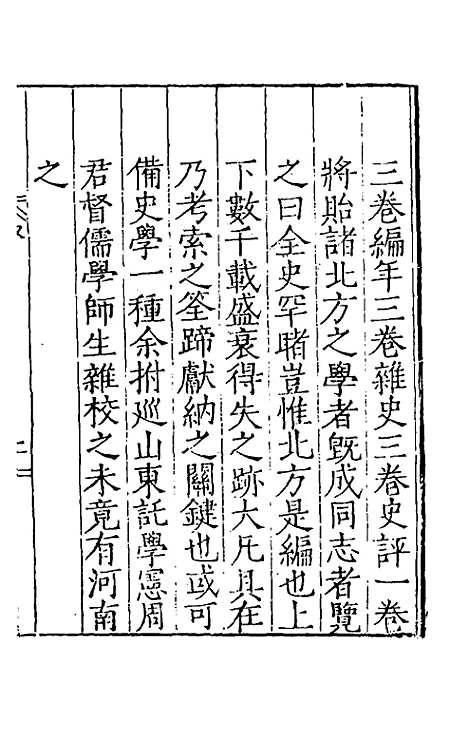 三卷編年三卷雜史三卷史評一卷
將貽諸北方之學者既成同志者覽
之曰全史罕睹豈惟北方是編也上
下數千載盛衰得失之跡大凡具在
乃考索之筌蹄獻納之關鍵也或可
備史學一種余拊巡山東託學憲周
君督儒學師生雜校之未竟有河南
之